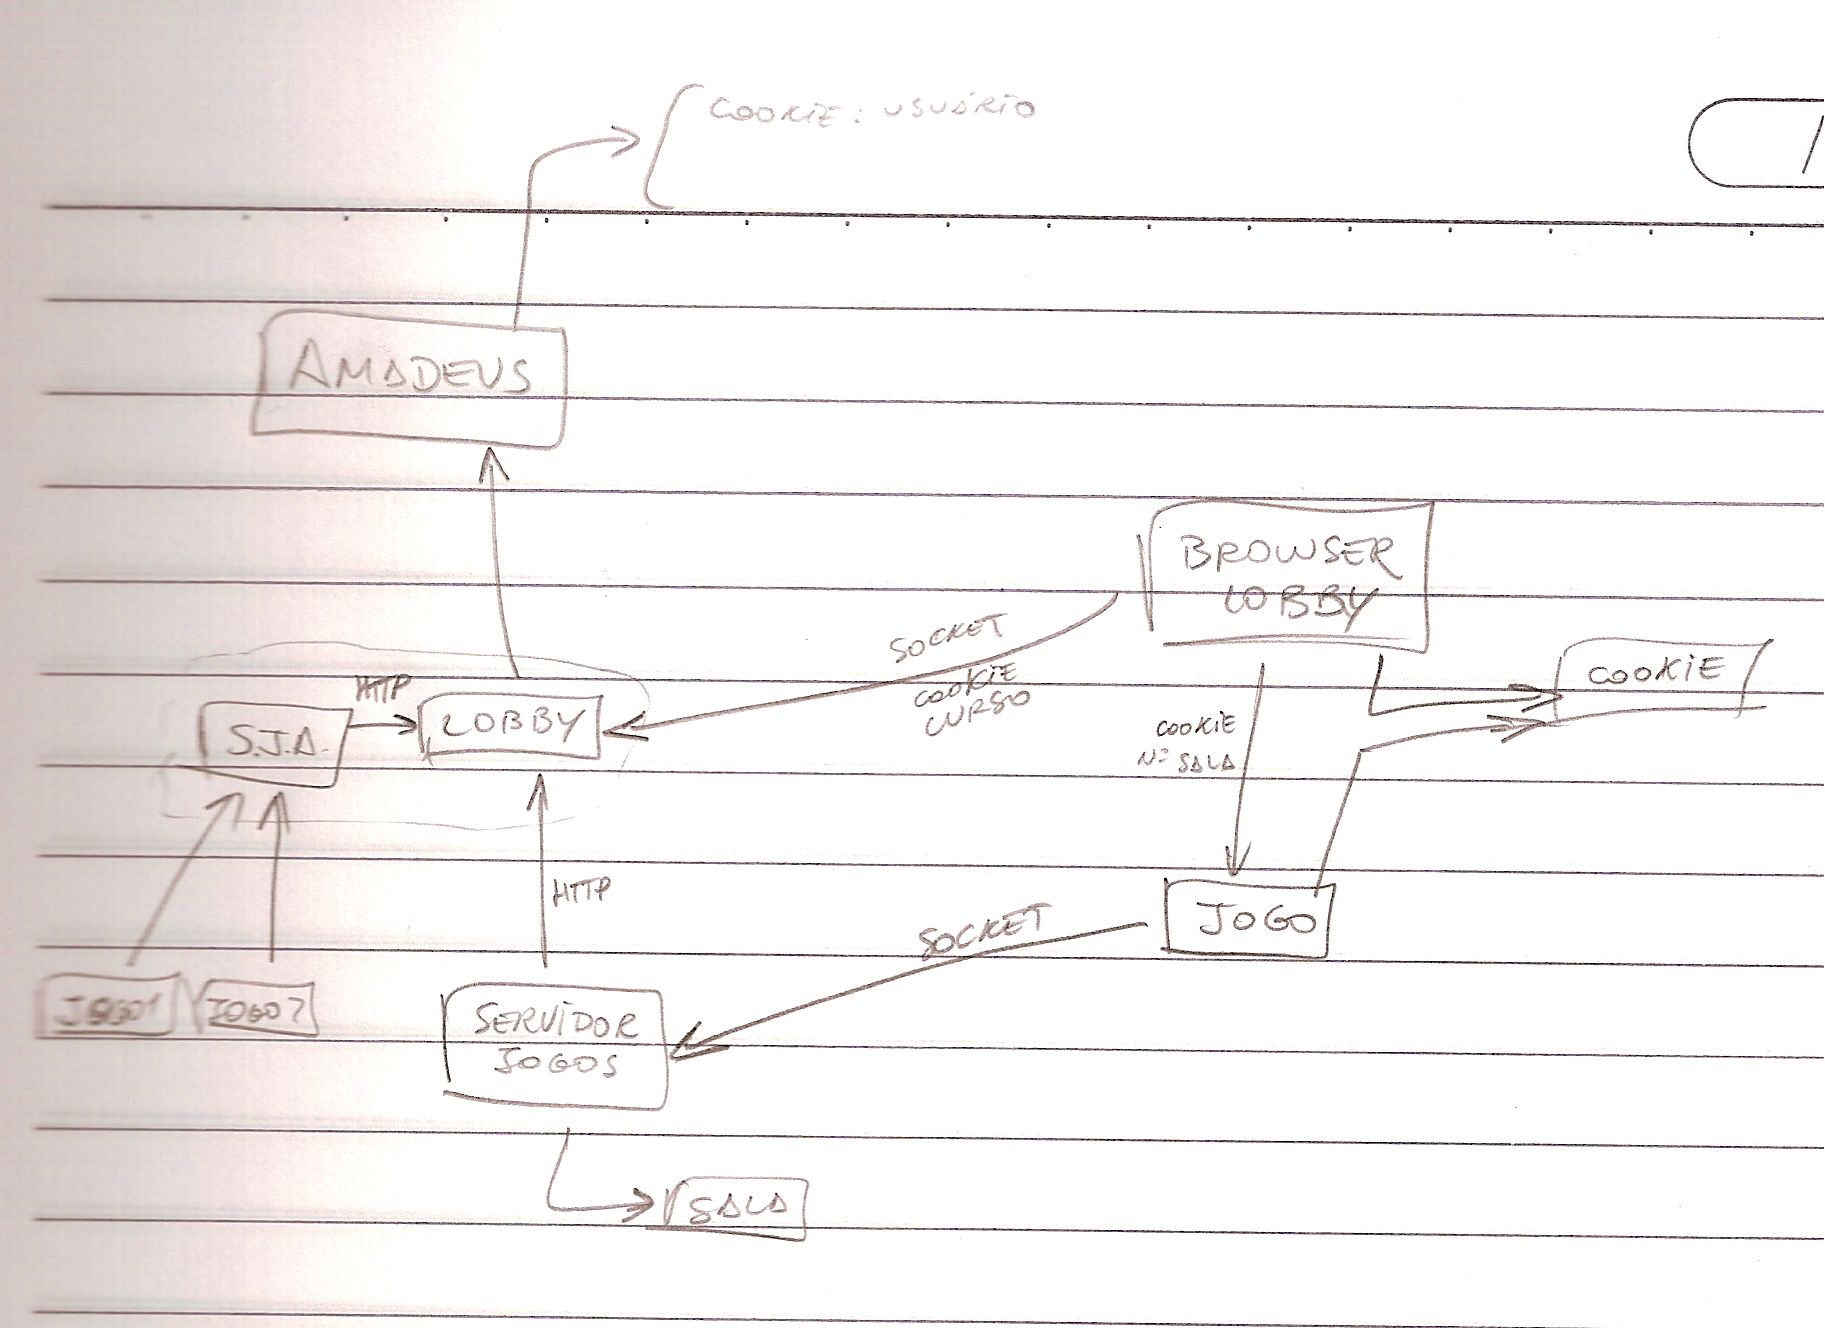 COOKIE: USUÁRIO
AMADEUS
BROWSER
LOBBY
SOCKET
COOKIE
CURSO
COOKIE
HTTP
S.J.A.
LOBBY
COOKIE
Nº SALA
HTTP
JOGO
SOCKET
JOGO1
JOGO2
SERVIDOR
JOGOS
SALA